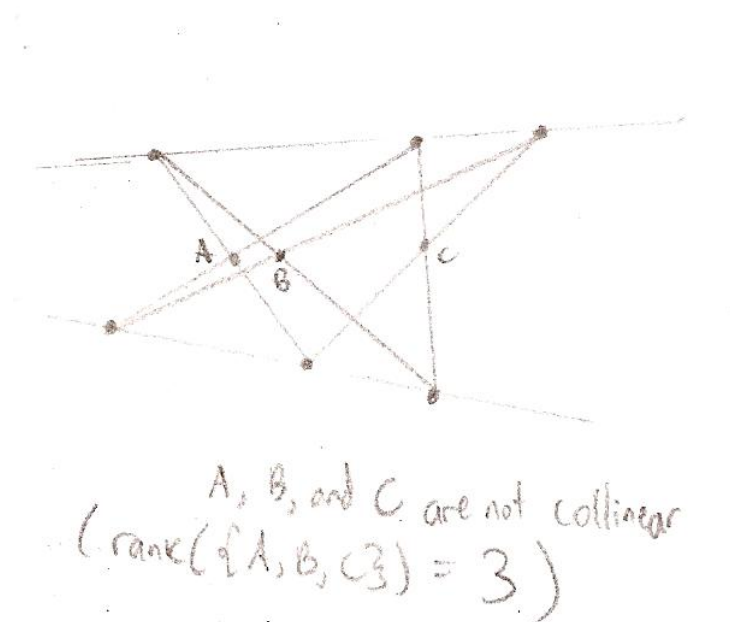 A
B
C
A, B, and C are not collinear
(rank({A,B,C}) = 3)